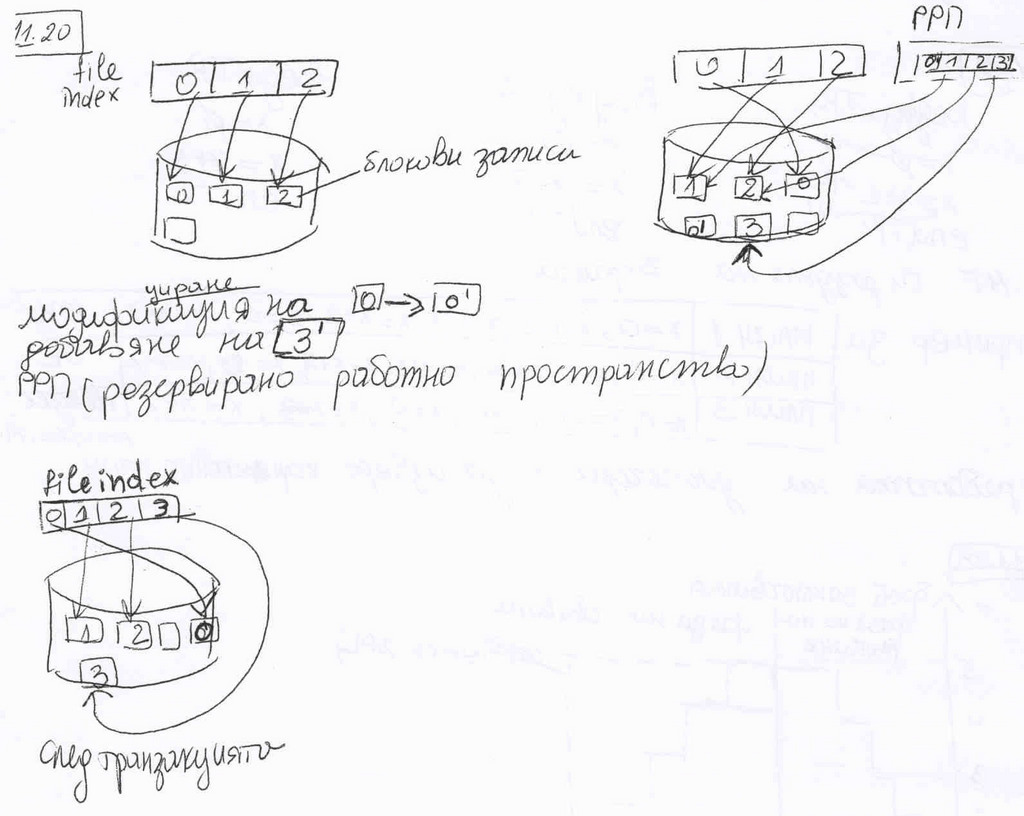 11.20
file
index
0 1 2
0 1 2
блокови записи
РРП
0 1 2
0' 1 2 3
1 2 0
0' 3
модификация на 0 → 0'
добавяне на 3'
РРП (резервирано работно пространство)
file index
0 1 2 3
1 2 0
3
след транзакцията